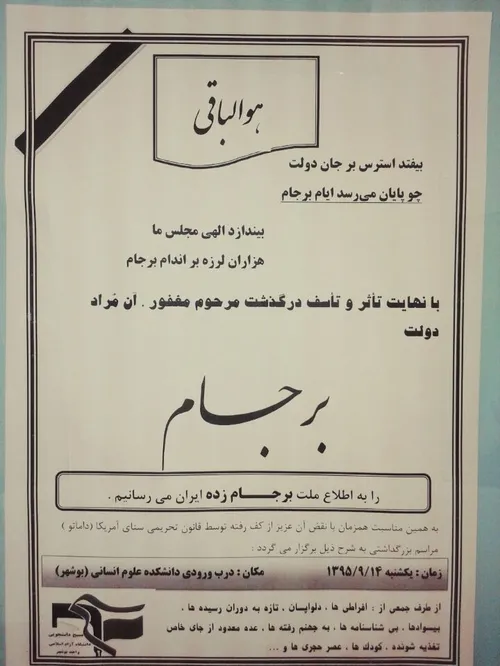 هوالباقی
بیفتد استرس بر جان دولت
چو پایان می‌رسد ایام برجام
بیندازد الهی مجلس ما
هزاران لرزه بر اندام برجام
با نهایت تأثر و تأسف درگذشت مرحوم مغفور . آن مُراد
دولت
برجام
را به اطلاع ملت برجـام زده ایران می رسانیم .
به همین مناسبت همزمان با نقض آن عزیز از کف رفته توسط قانون تحریمی سنای آمریکا (داماتو )
مراسم بزرگداشتی به شرح ذیل برگزار می گردد :
زمان : یکشنبه ۱۳۹۵/۹/۱۴ مکان : درب ورودی دانشکده علوم انسانی (بوشهر)
از طرف جمعی از : افراطی ها ، دلواپسان ، تازه به دوران رسیده ها ،
بیسوادها، بی شناسنامه ها ، به جهنم رفته ها ، عده معدود از جای خاص
تغذیه شونده ، کودک ها ، عصر حجری ها و ...
بسیج دانشجویی
دانشگاه آزاد اسلامی
واحد بوشهر